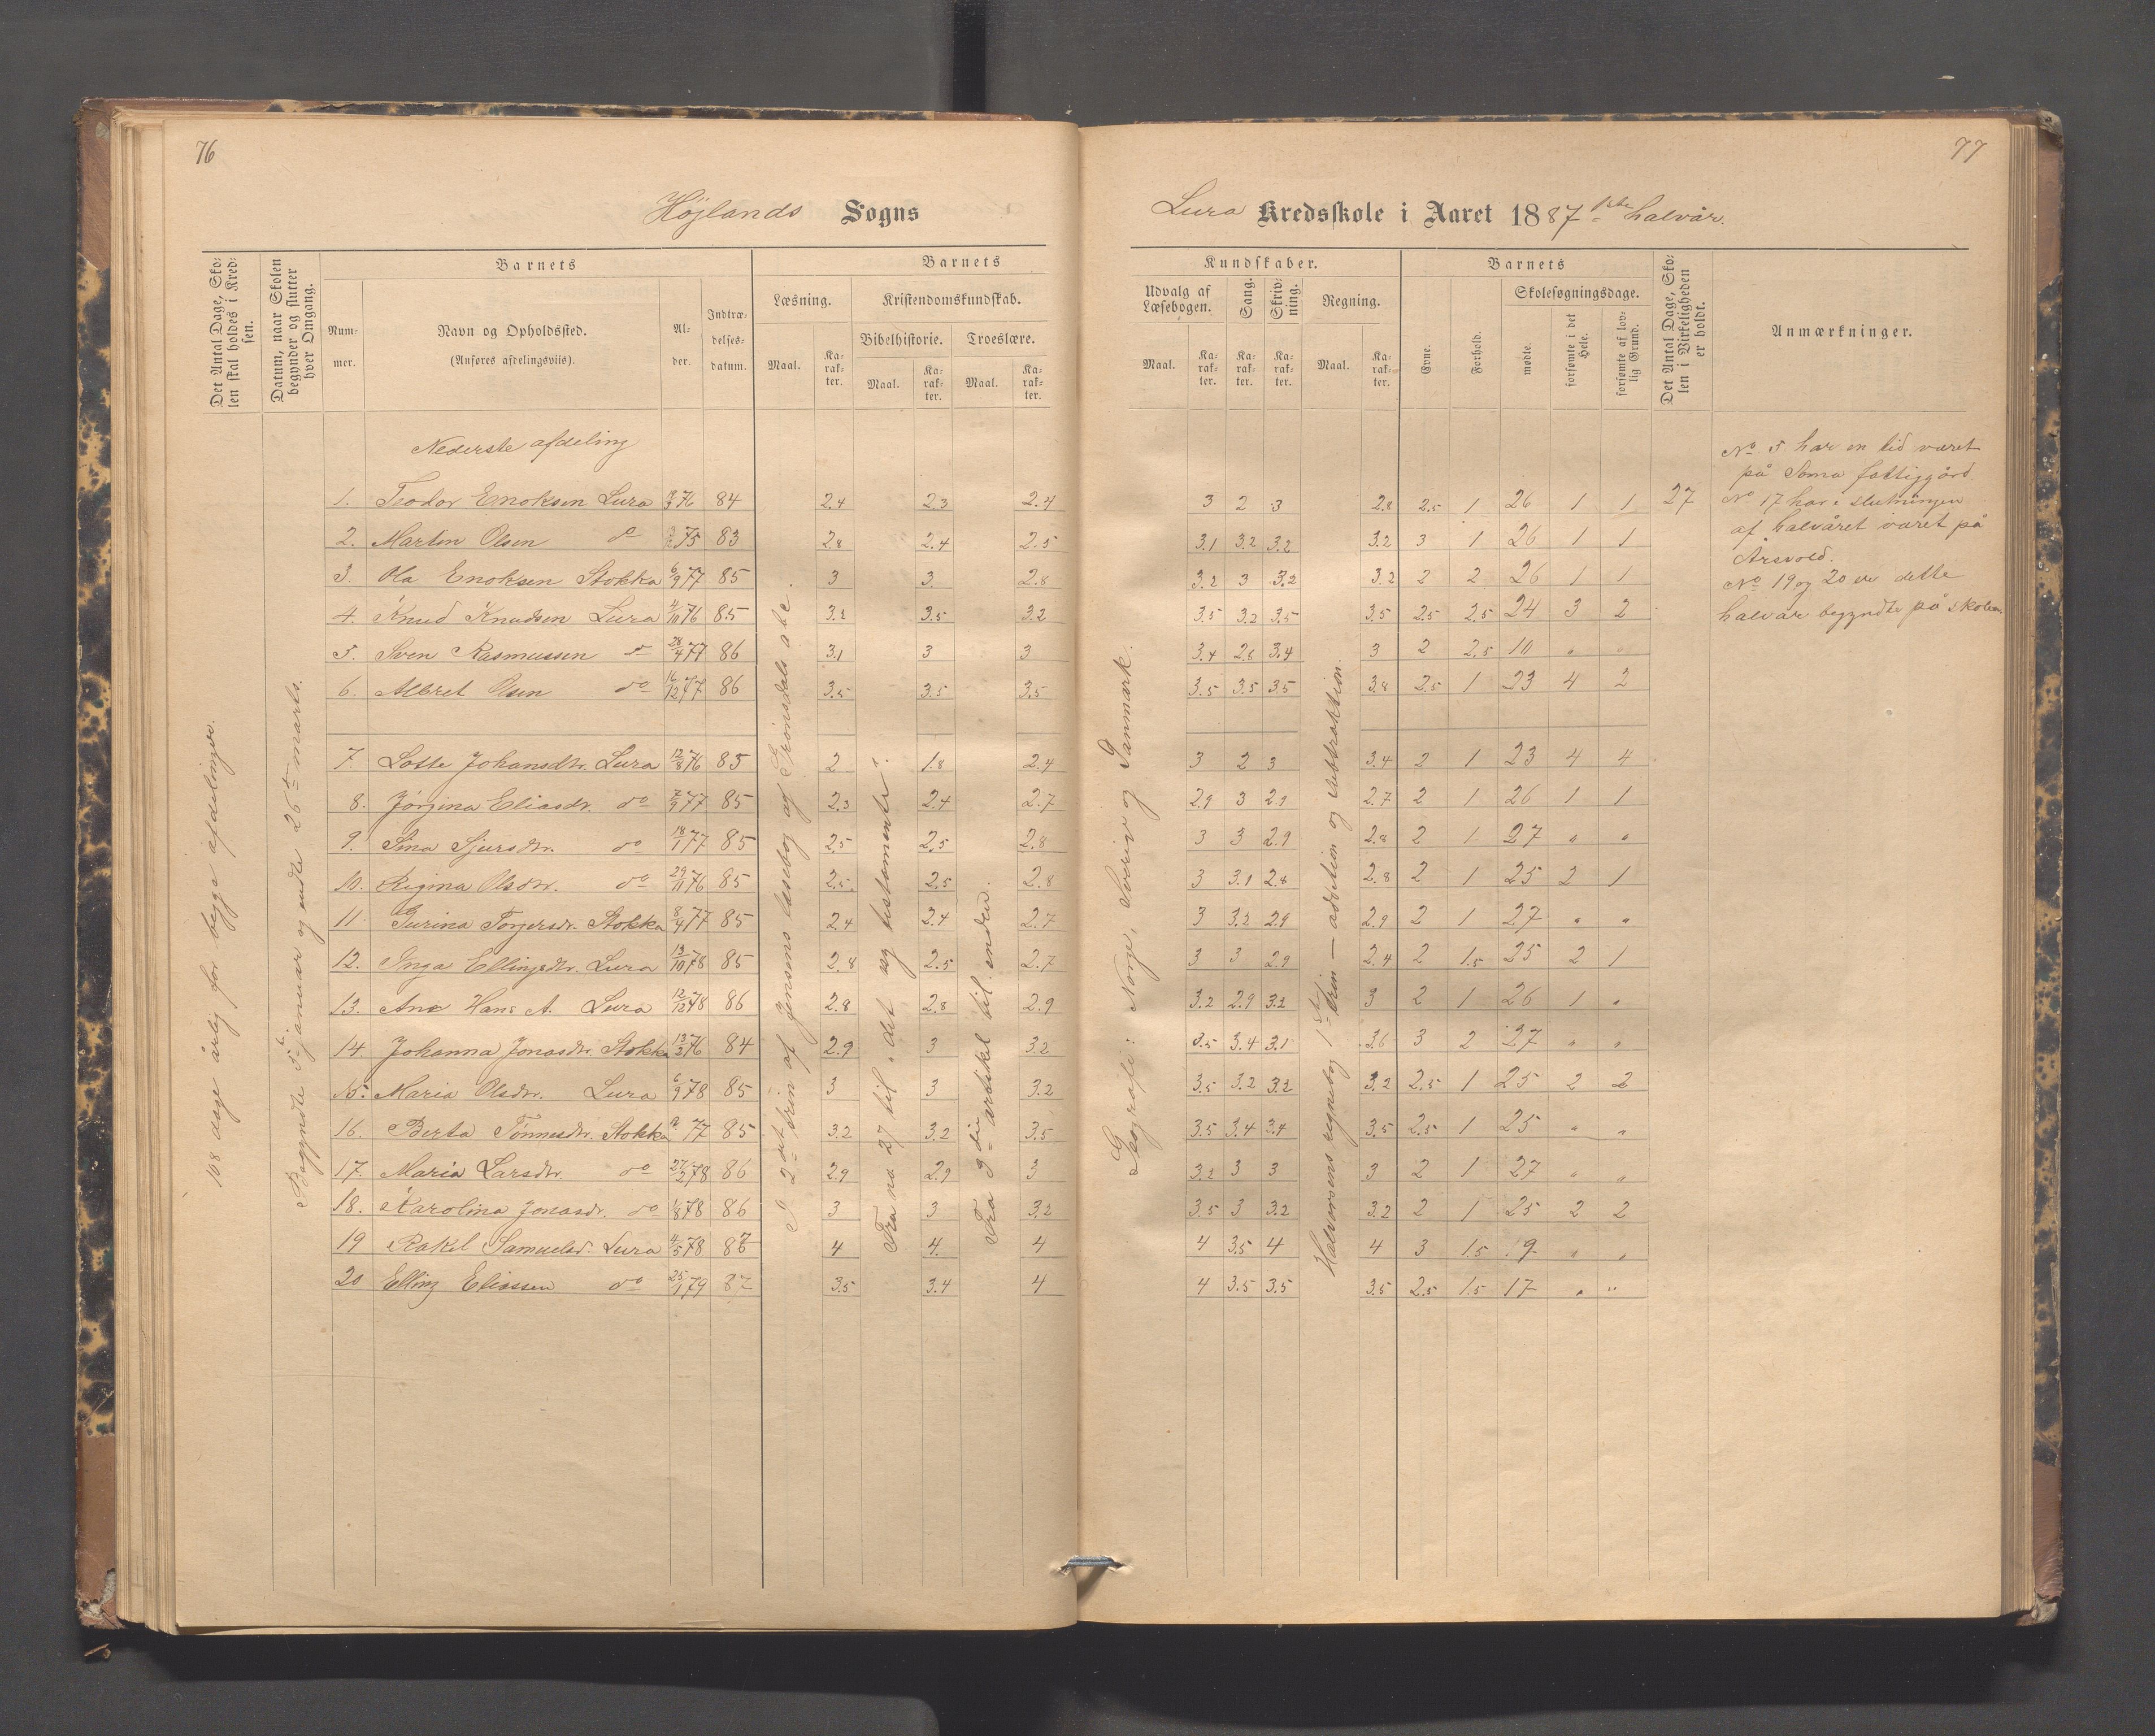 76
Højlands Sogns
Det Antal Dage, Skolen skal holdes i Kredsen.
Datum, naar Skolen begynder og slutter hver Omgang.
Barnets
Nummer.
Navn og Opholdssted.
(Anføres afdelingsviis).
Alder.
Indtrædelsesdatum.
Barnets
Læsning.
Kristendomskundskab.
Bibelhistorie.
Troeslære.
Maal.
Karakter.
Maal.
Karakter.
Maal.
Karakter.
108 dage årlig for begge afdelinger.
Begyndte 5te januar og endte 26de marts.
I 2det trin af Jensens læsebog og af Grønsdals abc.
Fra no 27 til "det nye testamente".
Fra 3die artikel til enden.
Nederste afdeling
1. Teodor Enoksen Lura 76 84 2.4 2.3 2.4
2. Martin Olsen do 75 83 2.8 2.4 2.5
3. Ola Enoksen Stokka 6/9 77 85 3 3 2.8
4. Knud Knudsen Lura 4/10 76 85 3.2 3.5 3.2
5. Sven Rasmussen do 28/4 77 86 3.1 3 3
6. Albret Olsen do 16/12 77 86 3.5 3.5 3.5
7. Lotte Johansdtr. Lura 12/8 76 85 2 1.8 2.4
8. Jørgina Eliasdr. do 7/9 77 85 2.3 2.4 2.7
9. Sina Sjursdtr. do 18/1 77 85 2.5 2.5 2.8
10. Regina Olsdtr. do 29/11 76 85 2.5 2.5 2.8
11. Gurina Torgersdr. Stokka 8/4 77 85 2.4 2.4 2.7
12. Inga Ellingsdtr. Lura 13/10 78 85 2.8 2.5 2.7
13. Ane Hans A. Lura 12/12 78 86 2.8 2.8 2.9
14. Johanna Jonasdtr. Stokka 13/3 76 84 2.9 3 3.2
15. Maria Olsdtr. Lura 6/9 78 85 3 3 3.2
16. Berta Tønnesdtr. Stokka 77 85 3.2 3.2 3.5
17. Maria Larsdtr. do 27/2 78 86 2.9 2.9 3
18. Karolina Jonasdr. do 1/8 78 86 3 3 3.2
19 Rakel Samuelsd. Lura 4/5 78 87 4 4 4
20 Elling Eliassen do 25/1 79 87 3.5 3.4 4
77
Lura Kredsskole i Aaret 1887 1ste halvår.
Kundskaber.
Udvalg af Læsebogen.
Sang.
Skrivning.
Regning.
Maal.
Karakter.
Karakter.
Karakter.
Maal.
Karakter.
Barnets
Evne.
Forhold.
Skolesøgningsdage.
mødte.
forsømte i det Hele.
forsømte af lovlig Grund.
Det Antal Dage, Skolen i Virkeligheden er holdt.
Anmærkninger.
Geografi: Norge, Sverig og Danmark.
Halvorsens regnebog 1ste trin — addition og subtraktion.
3 2 3 2.8 2.5 1 26 1 1 27
3.1 3.2 3.2 3.2 3 1 26 1 1
3.2 3 3.2 3.2 2 2 26 1 1
3.5 3.2 3.5 3.5 2.5 2.5 24 3 2
3.4 2.8 3.4 3 2 2.5 10 " "
3.5 3.5 3.5 3.8 2.5 1 23 4 2
3 2 3 3.4 2 1 23 4 4
2.9 3 2.9 2.7 2 1 26 1 1
3 3 2.9 2.8 2 1 27 " "
3 3.1 2.8 2.8 2 1 25 2 1
3 3.2 2.9 2.9 2 1 27 " "
3 3 2.9 2.4 2 1.5 25 2 1
3.2 2.9 3.2 3 2 1 26 1 "
3.5 3.4 3.1 3.6 3 2 27 " "
3.5 3.2 3.2 3.2 2.5 1 25 2 2
3.5 3.4 3.4 3.5 2.5 1 25 " "
3.2 3 3 3 2 1 27 " "
3.5 3 3.2 3.2 2 1 25 2 2
4 3.5 4 4 3 1.5 19 " "
4 3.5 3.5 3.5 2.5 1.5 17 " "
No 5 har en tid været
på Soma fattiggård
No 17 har i slutningen
af halvåret været på
Årsvold.
No 19 og 20 er dette
halvår begyndte på skolen.